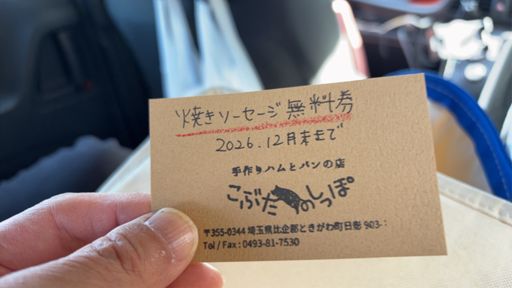 焼きソーセージ無料券
2026.12月末まで
手作りハムとパンの店
こぶたのしっぽ
〒355-0344 埼玉県比企郡ときがわ町日影 903-
Tel / Fax : 0493-81-7530